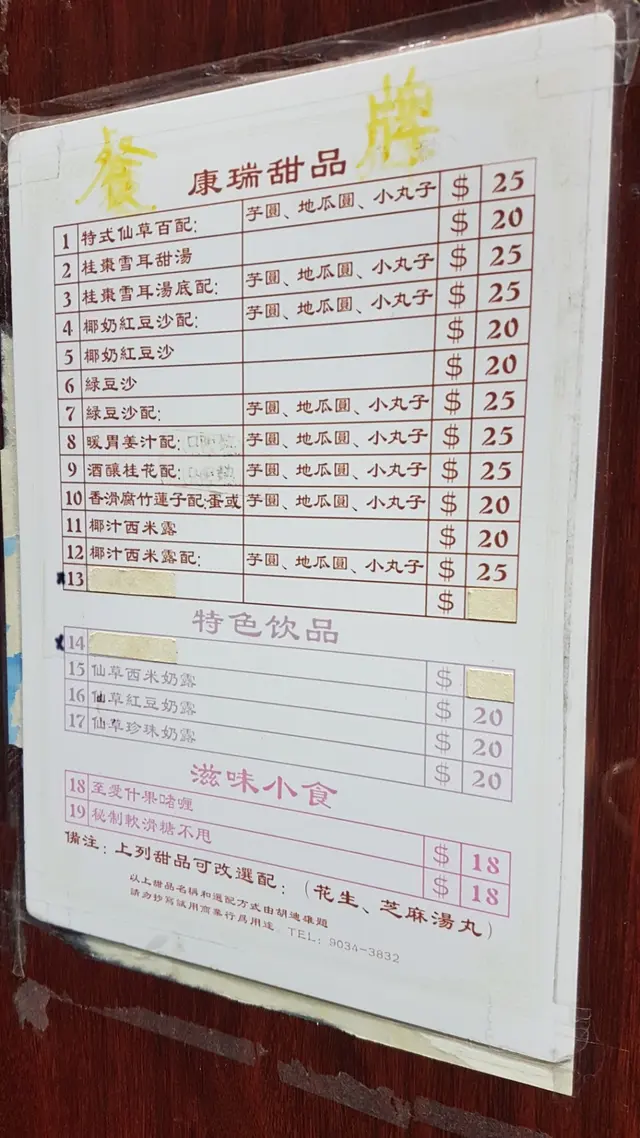 餐牌
康瑞甜品
1 特式仙草百配: 芋圓、地瓜圓、小丸子 $ 25
2 桂棗雪耳甜湯 $ 20
3 桂棗雪耳湯底配: 芋圓、地瓜圓、小丸子 $ 25
4 椰奶紅豆沙配: 芋圓、地瓜圓、小丸子 $ 25
5 椰奶紅豆沙 $ 20
6 綠豆沙 $ 20
7 綠豆沙配: 芋圓、地瓜圓、小丸子 $ 25
8 暖胃姜汁配: 芋圓、地瓜圓、小丸子 $ 25
9 酒釀桂花配: 芋圓、地瓜圓、小丸子 $ 25
10 香滑腐竹蓮子配:蛋或 芋圓、地瓜圓、小丸子 $ 20
11 椰汁西米露 $ 20
12 椰汁西米露配: 芋圓、地瓜圓、小丸子 $ 25
13 $
特色饮品
14 $
15 仙草西米奶露 $ 20
16 仙草紅豆奶露 $ 20
17 仙草珍珠奶露 $ 20
滋味小食
18 至愛什果啫喱 $ 18
19 秘制軟滑糖不甩 $ 18
備注: 上列甜品可改選配: (花生、芝麻湯丸)
以上甜品名稱和選配方式由胡
請勿抄寫試用商業行爲用途 TEL: 9034-3832